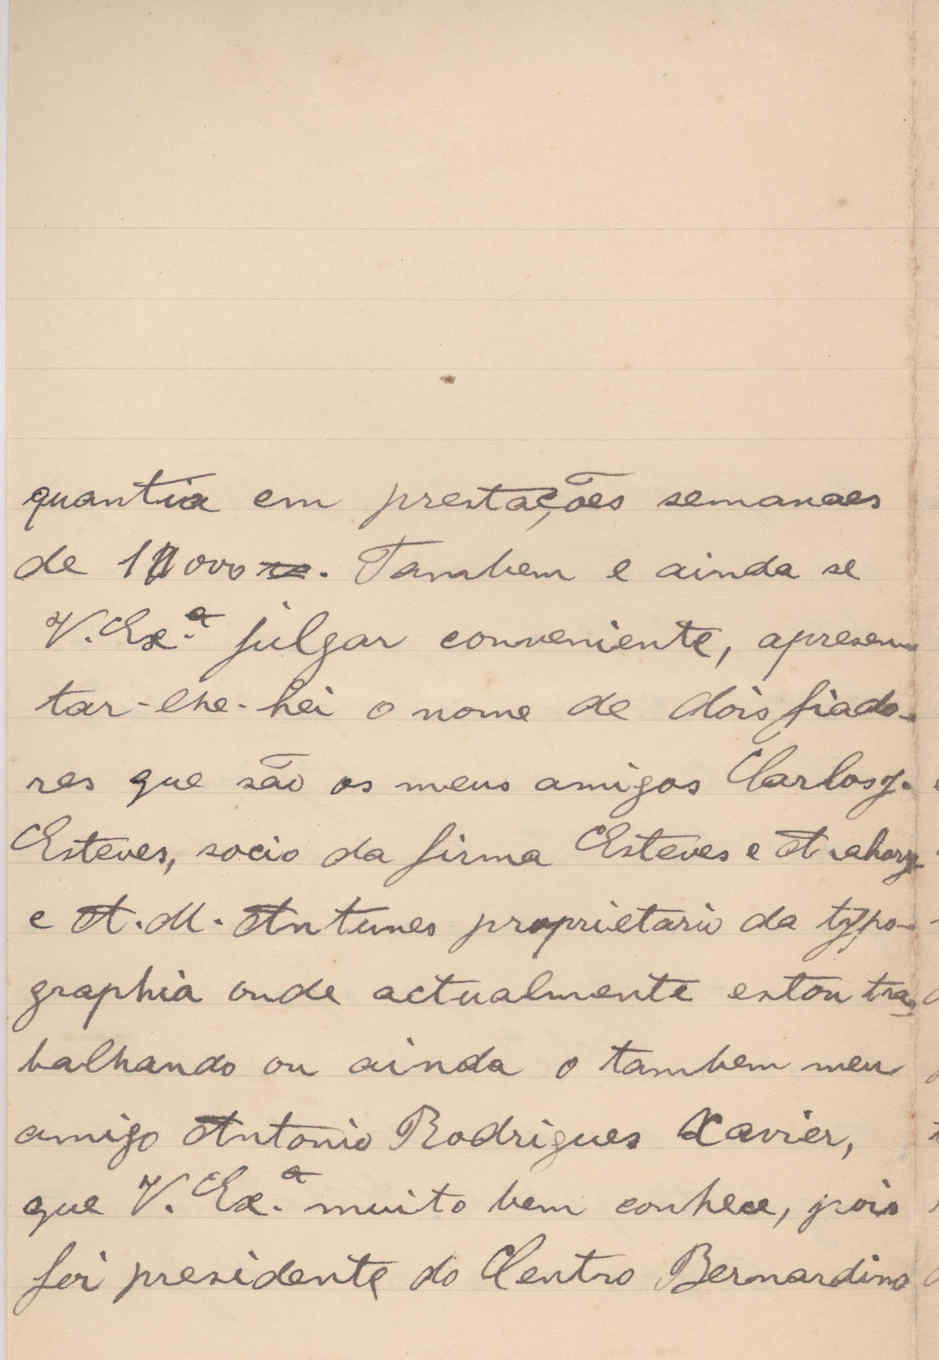 quantia em prestações semanaes
de 1$000 rs. Tambem e ainda se
V. Ex.ª julgar conveniente, apresen-
tar-lhe-hei o nome de dois fiado-
res que são os meus amigos Carlos J.
Esteves, socio da firma Esteves e
e A. M. Antunes proprietario da typo-
graphia onde actualmente estou tra-
balhando ou ainda o tambem meu
amigo Antonio Rodrigues Xavier,
que V. Ex.ª muito bem conhece, pois
foi presidente do Centro Bernardino